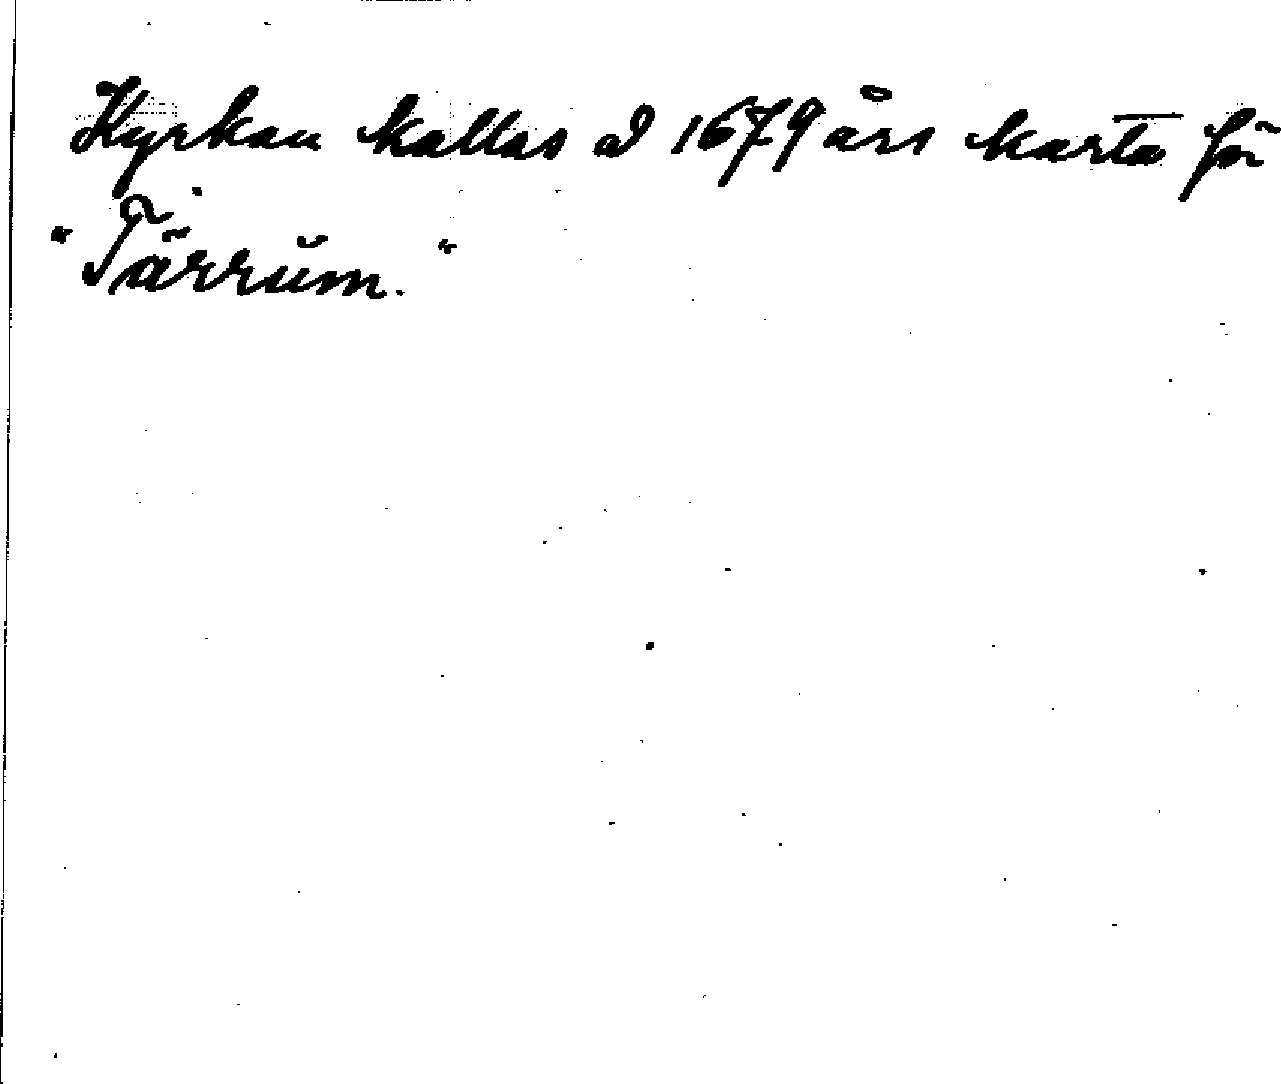 Kyrkan kallas å 1679 års karta för
"Tärrum."